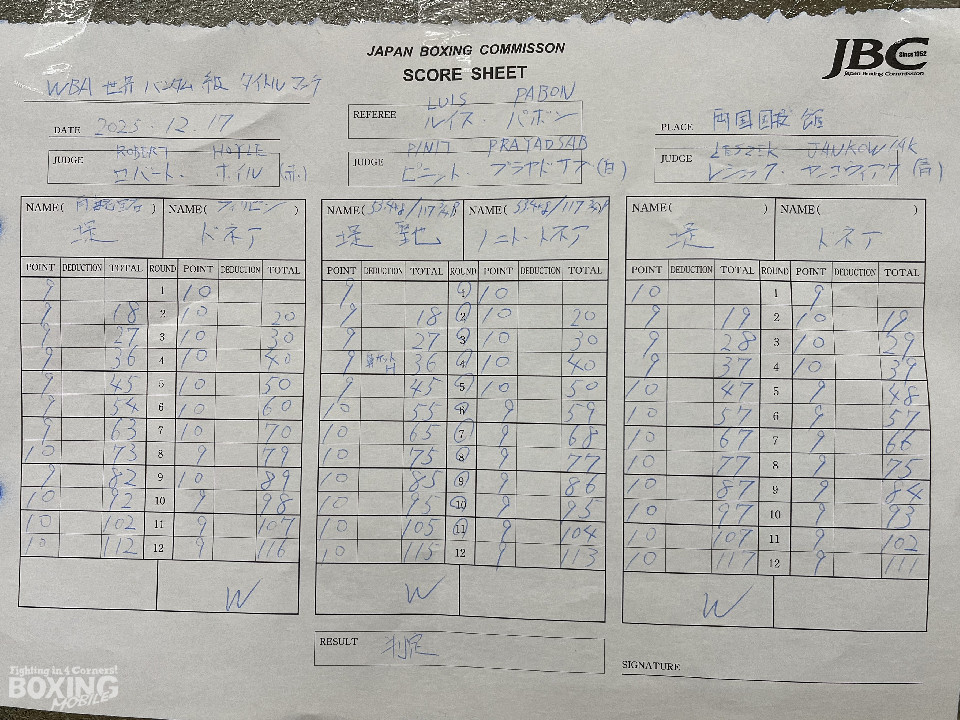 JAPAN BOXING COMMISSON
SCORE SHEET
JBC Since 1952
Japan Boxing Commission
WBA 世界 バンタム 級 タイトルマッチ
DATE 2025.12.17
REFEREE LUIS PABON
ルイス・パボン
PLACE 両国国技館
JUDGE ROBERT HOYLE
ロバート・ホイル (赤)
JUDGE PINIT PRAYADSAB
ピニット・プラヤドサブ (白)
JUDGE LESZEK JANKOWIAK
レシェック・ヤンコヴィアク (青)
NAME( ) NAME( フィリピン ) NAME( 53.4kg/117 3/4P NAME( 53.4kg/117 3/4P NAME( ) NAME( )
堤 ドネア 堤 聖也 ノニト・ドネア 堤 ドネア
POINT DEDUCTION TOTAL ROUND POINT DEDUCTION TOTAL POINT DEDUCTION TOTAL ROUND POINT DEDUCTION TOTAL POINT DEDUCTION TOTAL ROUND POINT DEDUCTION TOTAL
9 1 10 9 1 10 10 1 9
9 18 2 10 20 9 18 2 10 20 9 19 2 10 19
9 27 3 10 30 9 27 3 10 30 9 28 3 10 29
9 36 4 10 40 9 36 4 10 40 9 37 4 10 39
9 45 5 10 50 9 45 5 10 50 10 47 5 9 48
9 54 6 10 60 10 55 6 9 59 10 57 6 9 57
9 63 7 10 70 10 65 7 9 68 10 67 7 9 66
10 73 8 9 79 10 75 8 9 77 10 77 8 9 75
9 82 9 10 89 10 85 9 9 86 10 87 9 9 84
10 92 10 9 98 10 95 10 9 95 10 97 10 9 93
10 102 11 9 107 10 105 11 9 104 10 107 11 9 102
10 112 12 9 116 10 115 12 9 113 10 117 12 9 111
W W W
RESULT 判定
SIGNATURE
Fighting in 4 Corners!
BOXING
MOBILE